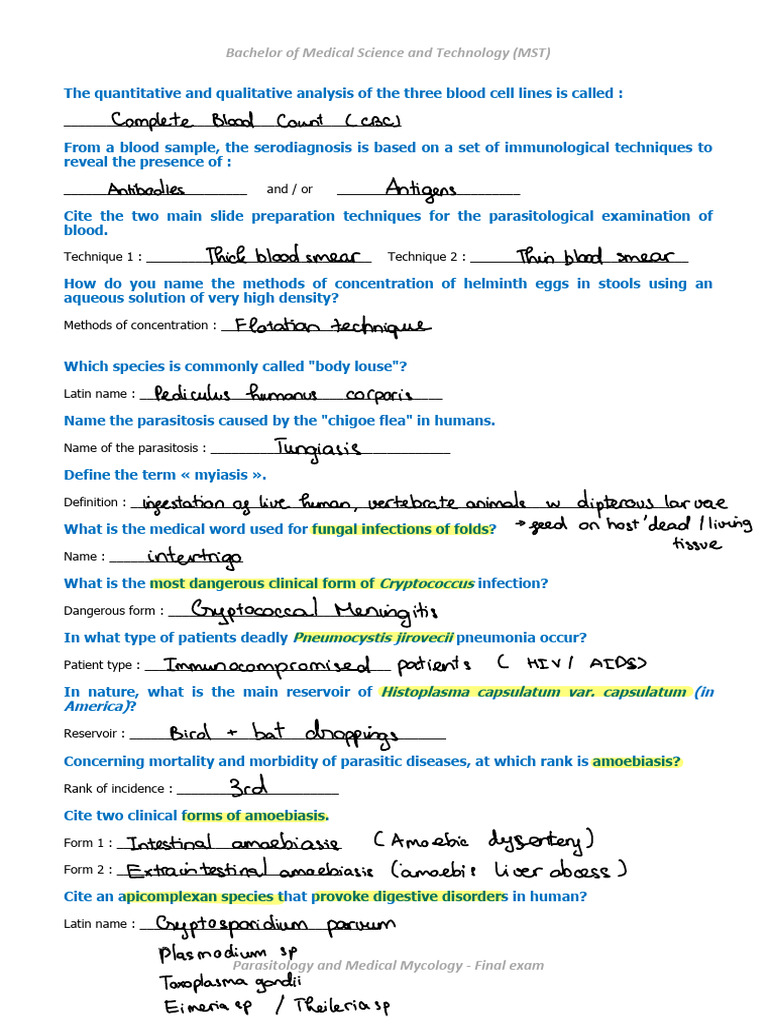 Bachelor of Medical Science and Technology (MST)
The quantitative and qualitative analysis of the three blood cell lines is called :
Complete Blood Count (CBC)
From a blood sample, the serodiagnosis is based on a set of immunological techniques to
reveal the presence of :
Antibodies and / or Antigens
Cite the two main slide preparation techniques for the parasitological examination of
blood.
Technique 1 : Thick blood smear Technique 2 : Thin blood smear
How do you name the methods of concentration of helminth eggs in stools using an
aqueous solution of very high density?
Methods of concentration : Flotation technique
Which species is commonly called "body louse"?
Latin name : Pediculus humanus corporis
Name the parasitosis caused by the "chigoe flea" in humans.
Name of the parasitosis : Tungiasis
Define the term « myiasis ».
Definition : ingestation of live human, vertebrate animals w dipterous larvae
What is the medical word used for fungal infections of folds? → feed on host' dead / living
tissue
Name : intertrigo
What is the most dangerous clinical form of Cryptococcus infection?
Dangerous form : Cryptococcal Meningitis
In what type of patients deadly Pneumocystis jirovecii pneumonia occur?
Patient type : Immunocompromised patients ( HIV / AIDS)
In nature, what is the main reservoir of Histoplasma capsulatum var. capsulatum (in
America)?
Reservoir : Bird + bat droppings
Concerning mortality and morbidity of parasitic diseases, at which rank is amoebiasis?
Rank of incidence : 3rd
Cite two clinical forms of amoebiasis.
Form 1 : Intestinal amoebiasis (Amoebic dysentery)
Form 2 : Extraintestinal amoebiasis (amoebic liver abcess)
Cite an apicomplexan species that provoke digestive disorders in human?
Latin name : Cryptosporidium parvum
Plasmodium sp
Parasitology and Medical Mycology - Final exam
Toxoplasma gondii
Eimeria sp / Theileria sp